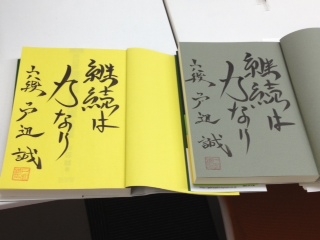 継続は
力なり
六段 戸辺誠
継続は
力なり
六段 戸辺誠